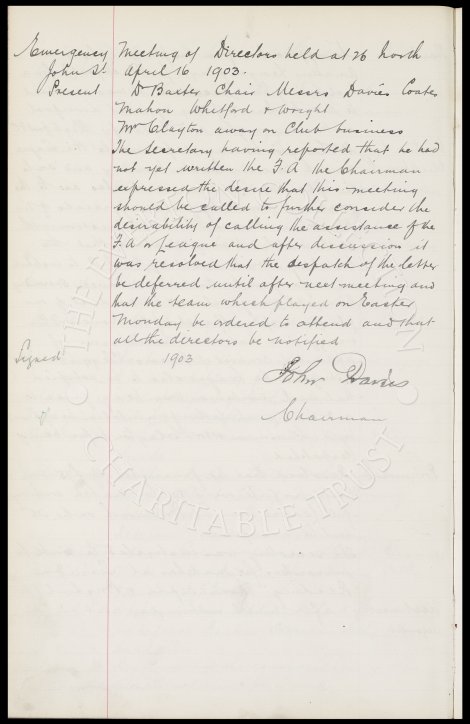 Emergency Meeting of Directors held at 26 North
John St April 16 1903.
Present Dr Baxter Chair Messrs Davies Coates
Mahon Whitford & Wright
Mr Clayton away on Club business
The Secretary having reported that he had
not yet written the F.A. the Chairman
expressed the desire that this meeting
should be called to further consider the
desirability of calling the assistance of the
F.A. or League and after discussion it
was resolved that the despatch of the letter
be deferred until after next meeting and
that the team which played on Easter
Monday be ordered to attend and that
all the directors be notified
Signed 1903
John Davies
Chairman
CHARITABLE TRUST